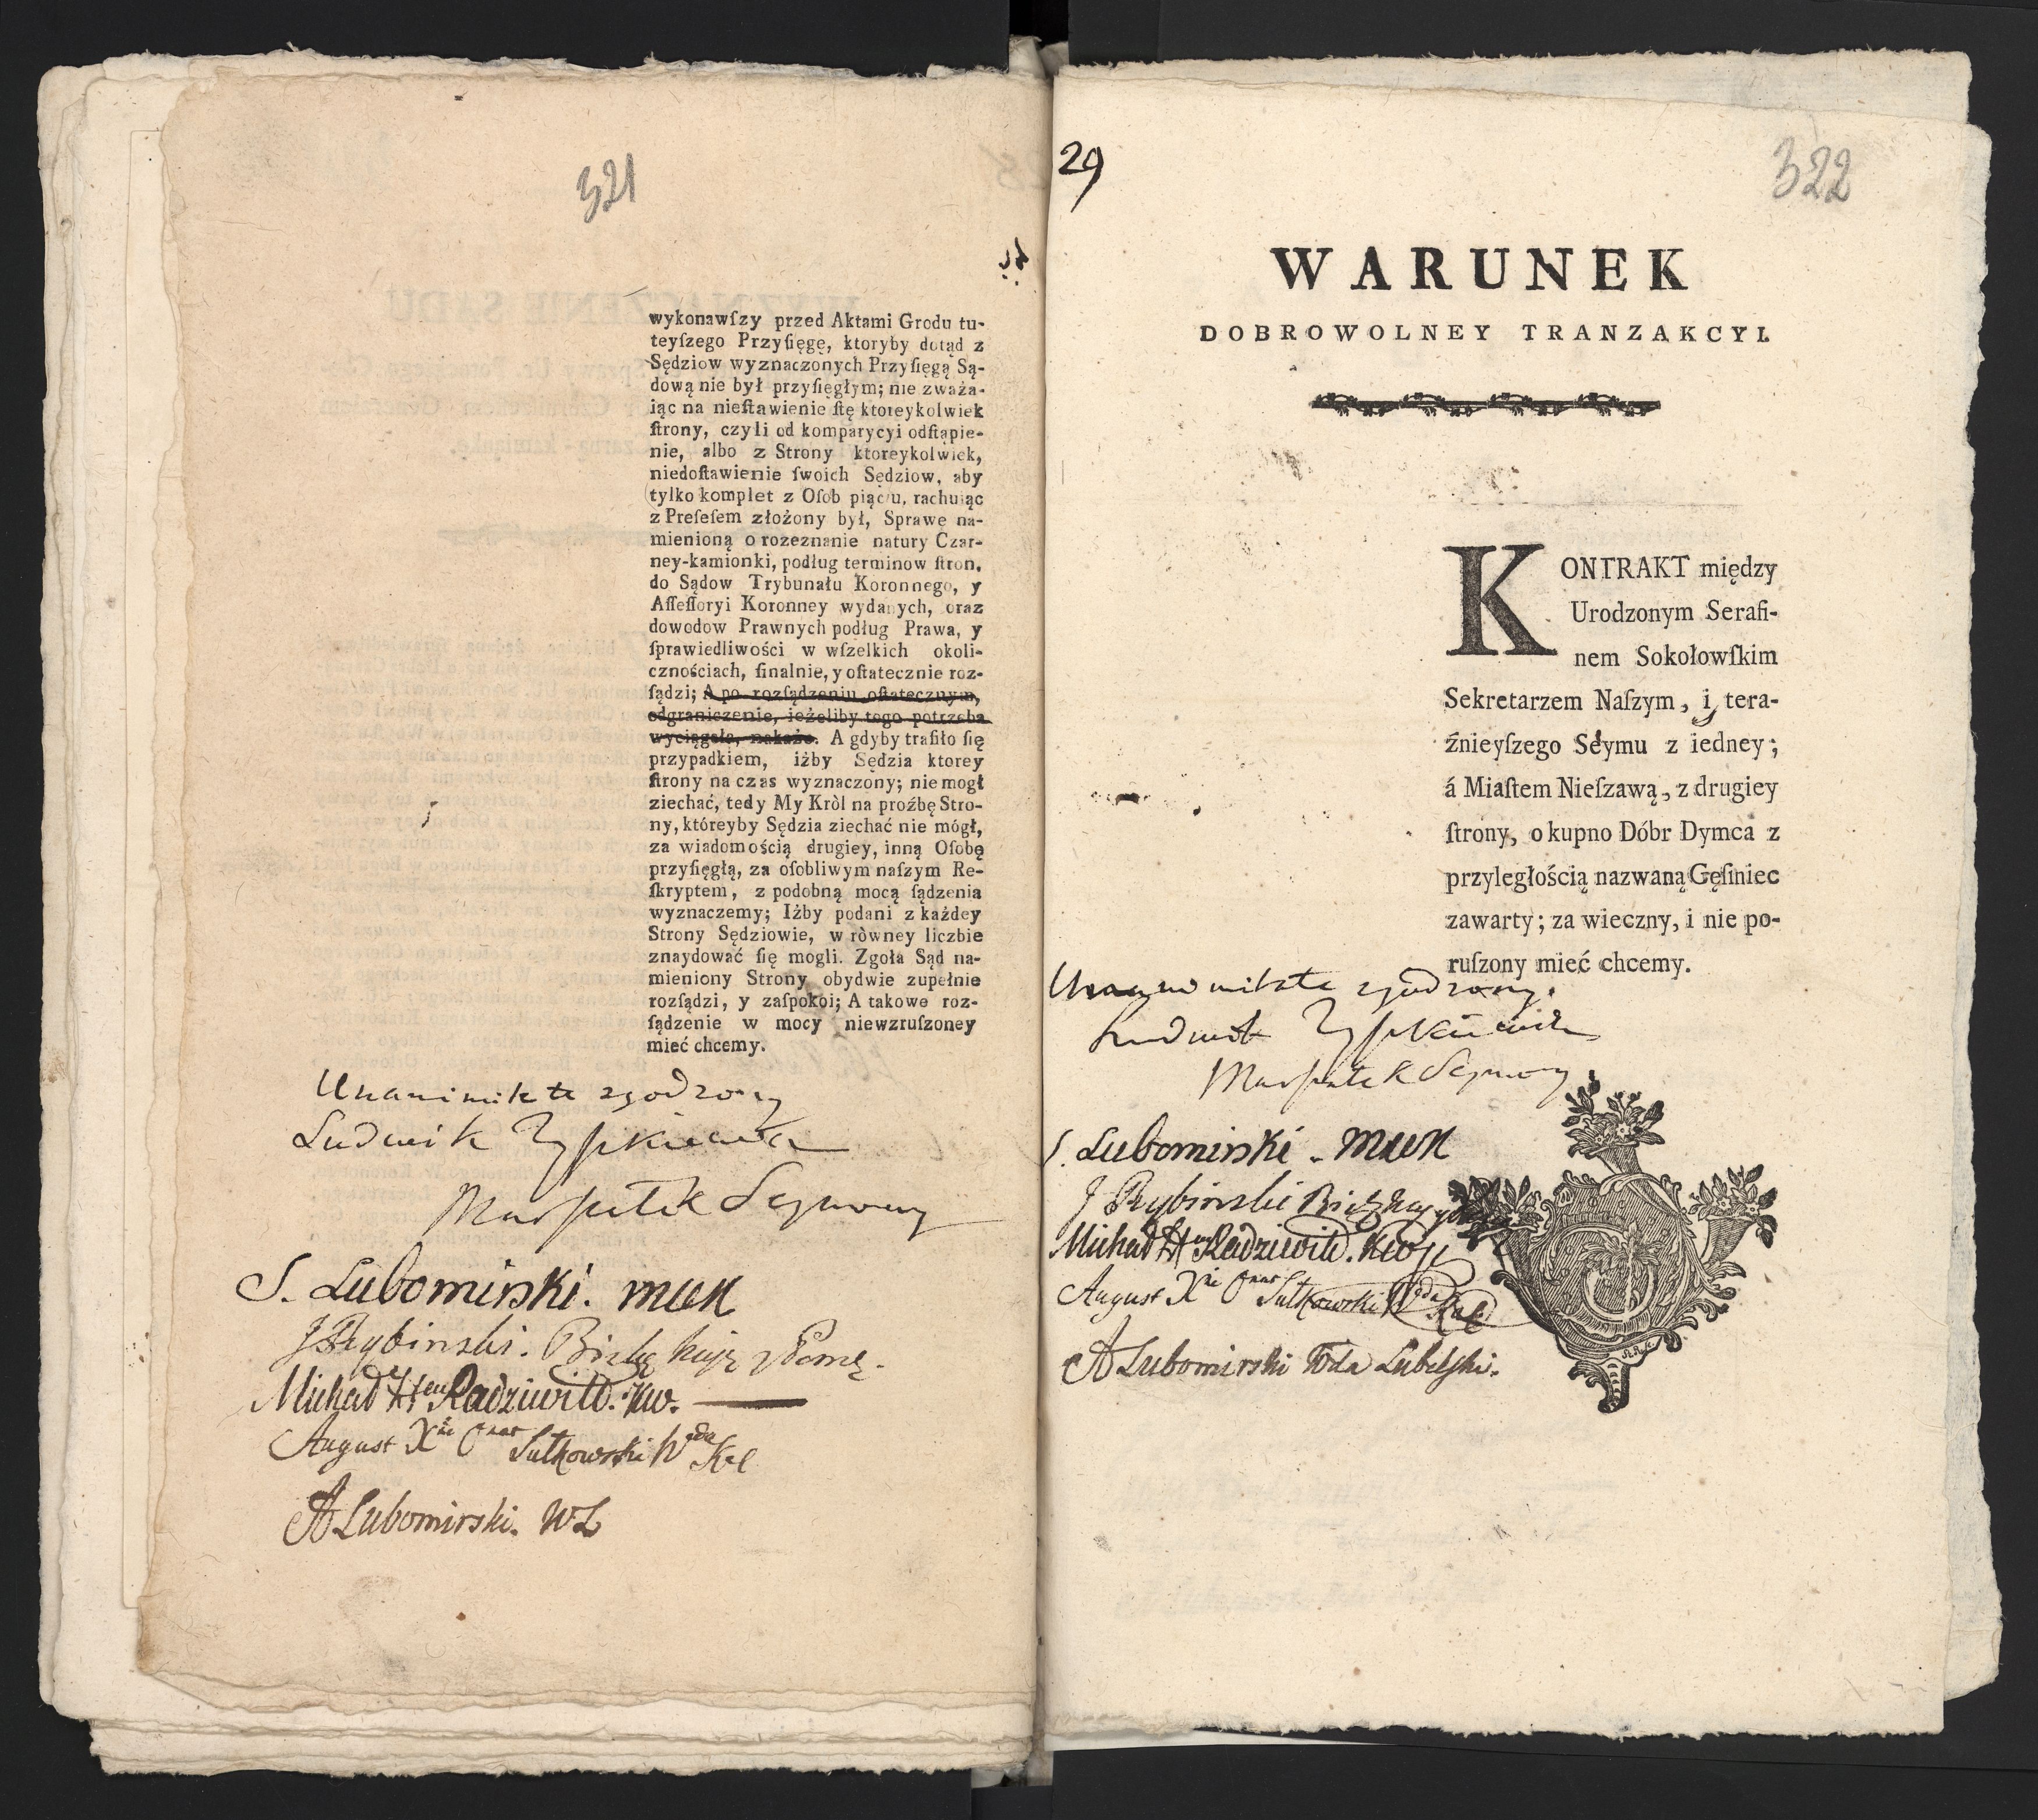 321
wykonawſzy przed Aktami Grodu tu-
teyſzego Przyſięgę, ktoryby dotąd z
Sędziow wyznaczonych Przyſięgą Są-
dową nie był przyſięgłym; nie zważa-
iąc na nieſtawienie ſię ktoreykolwiek
ſtrony, czyli od komparycyi odſtąpie-
nie, albo z Strony ktoreykolwiek,
niedoſtawienie ſwoich Sędziow, aby
tylko komplet z Oſob piąciu, rachuiąc
z Preſeſem złożony był, Sprawę na-
mienioną o rozeznanie natury Czar-
ney-kamionki, podług terminow ſtron,
do Sądow Trybunału Koronnego, y
Aſſeſſoryi Koronney wydanych, oraz
dowodow Prawnych podług Prawa, y
ſprawiedliwości w wſzelkich okoli-
cznościach, finalnie, y oſtatecznie roz-
ſądzi; A po rozſądzeniu oſtatecznym,
odgraniczenie, ieżeliby tego potrzeba
wyciągała, nakaże. A gdyby trafiło ſię
przypadkiem, iżby Sędzia ktorey
ſtrony na czas wyznaczony; nie mogł
ziechać, tedy My Kròl na proźbę Stro-
ny, któreyby Sędzia ziechać nie mógł,
za wiadomością drugiey, inną Oſobę
przyſięgłą, za oſobliwym naſzym Re-
ſkryptem, z podobną mocą ſądzenia
wyznaczemy; Iżby podani z każdey
Strony Sędziowie, w ròwney liczbie
znaydować ſię mogli. Zgoła Sąd na-
mieniony Strony obydwie zupełnie
rozſądzi, y zaſpokoi; A takowe roz-
ſądzenie w mocy niewzruſzoney
mieć chcemy.
Unanimitate zgodzony
Ludwik
Marszałek Seymowy
S. Lubomirski. MWK
J Rybinski. Biskup kuja: y Pom:
Michał Radziwiłł. KW.
August Xże Sułkowski Wda Kal
A Lubomirski. WL
29
322
WARUNEK
DOBROWOLNEY TRANZAKCYI.
KONTRAKT między
Urodzonym Serafi-
nem Sokołowſkim
Sekretarzem Naſzym, i tera-
źnieyſzego Seymu z iedney;
á Miaſtem Nieſzawą, z drugiey
ſtrony, o kupno Dóbr Dymca z
przyległością nazwaną Gęſiniec
zawarty; za wieczny, i nie po-
ruſzony mieć chcemy.
Unanimitate zgodzony.
Ludwik
Marszałek Seymowy
S. Lubomirski. MWK
J Rybinski
Michał Radziwiłł.
August Xże Sułkowski Wda Kal
A Lubomirski Wda Lubelski.